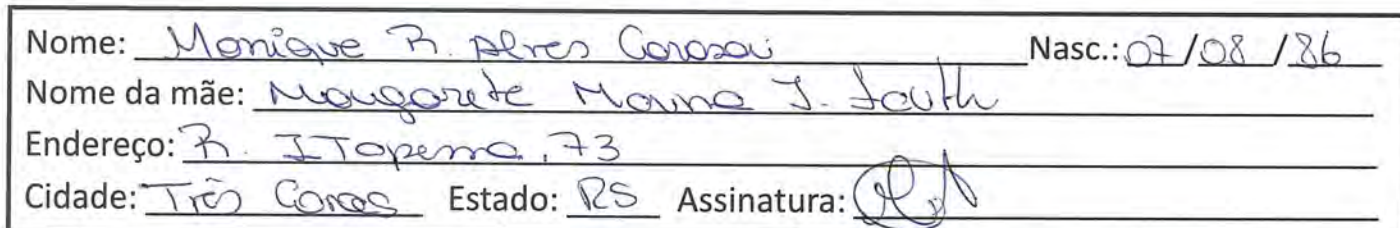 Nome: Monique R. Alves Nasc.: 07/08/86
Nome da mãe: Margarete Maria J.
Endereço: R. Itapema, 73
Cidade: Três Coroas Estado: RS Assinatura: